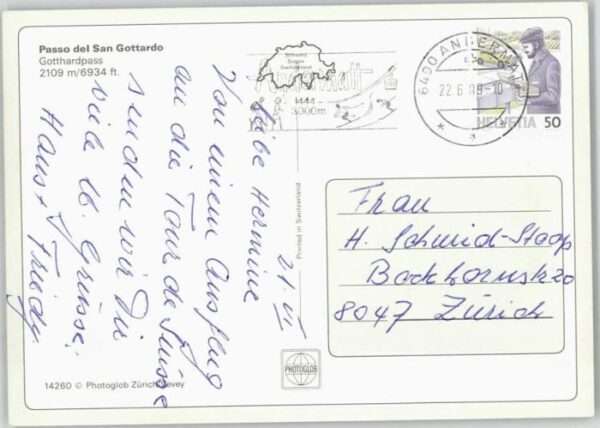 Passo del San Gottardo
Gotthardpass
2109 m/6934 ft.
Schweiz
Suisse
Switzerland
Andermatt
1444
3000m
6490 ANDERMATT
22.6.89-10
HELVETIA 50
21. VI
Liebe Hermine
Von einem Ausflug
an die Tour de Suisse
senden wir Dir
viele lb. Grüsse.
Hans + Trudy
Printed in Switzerland
Frau
H. Schmid-Staop
8047 Zürich
PHOTOGLOB
14260 © Photoglob Zürich/Vevey